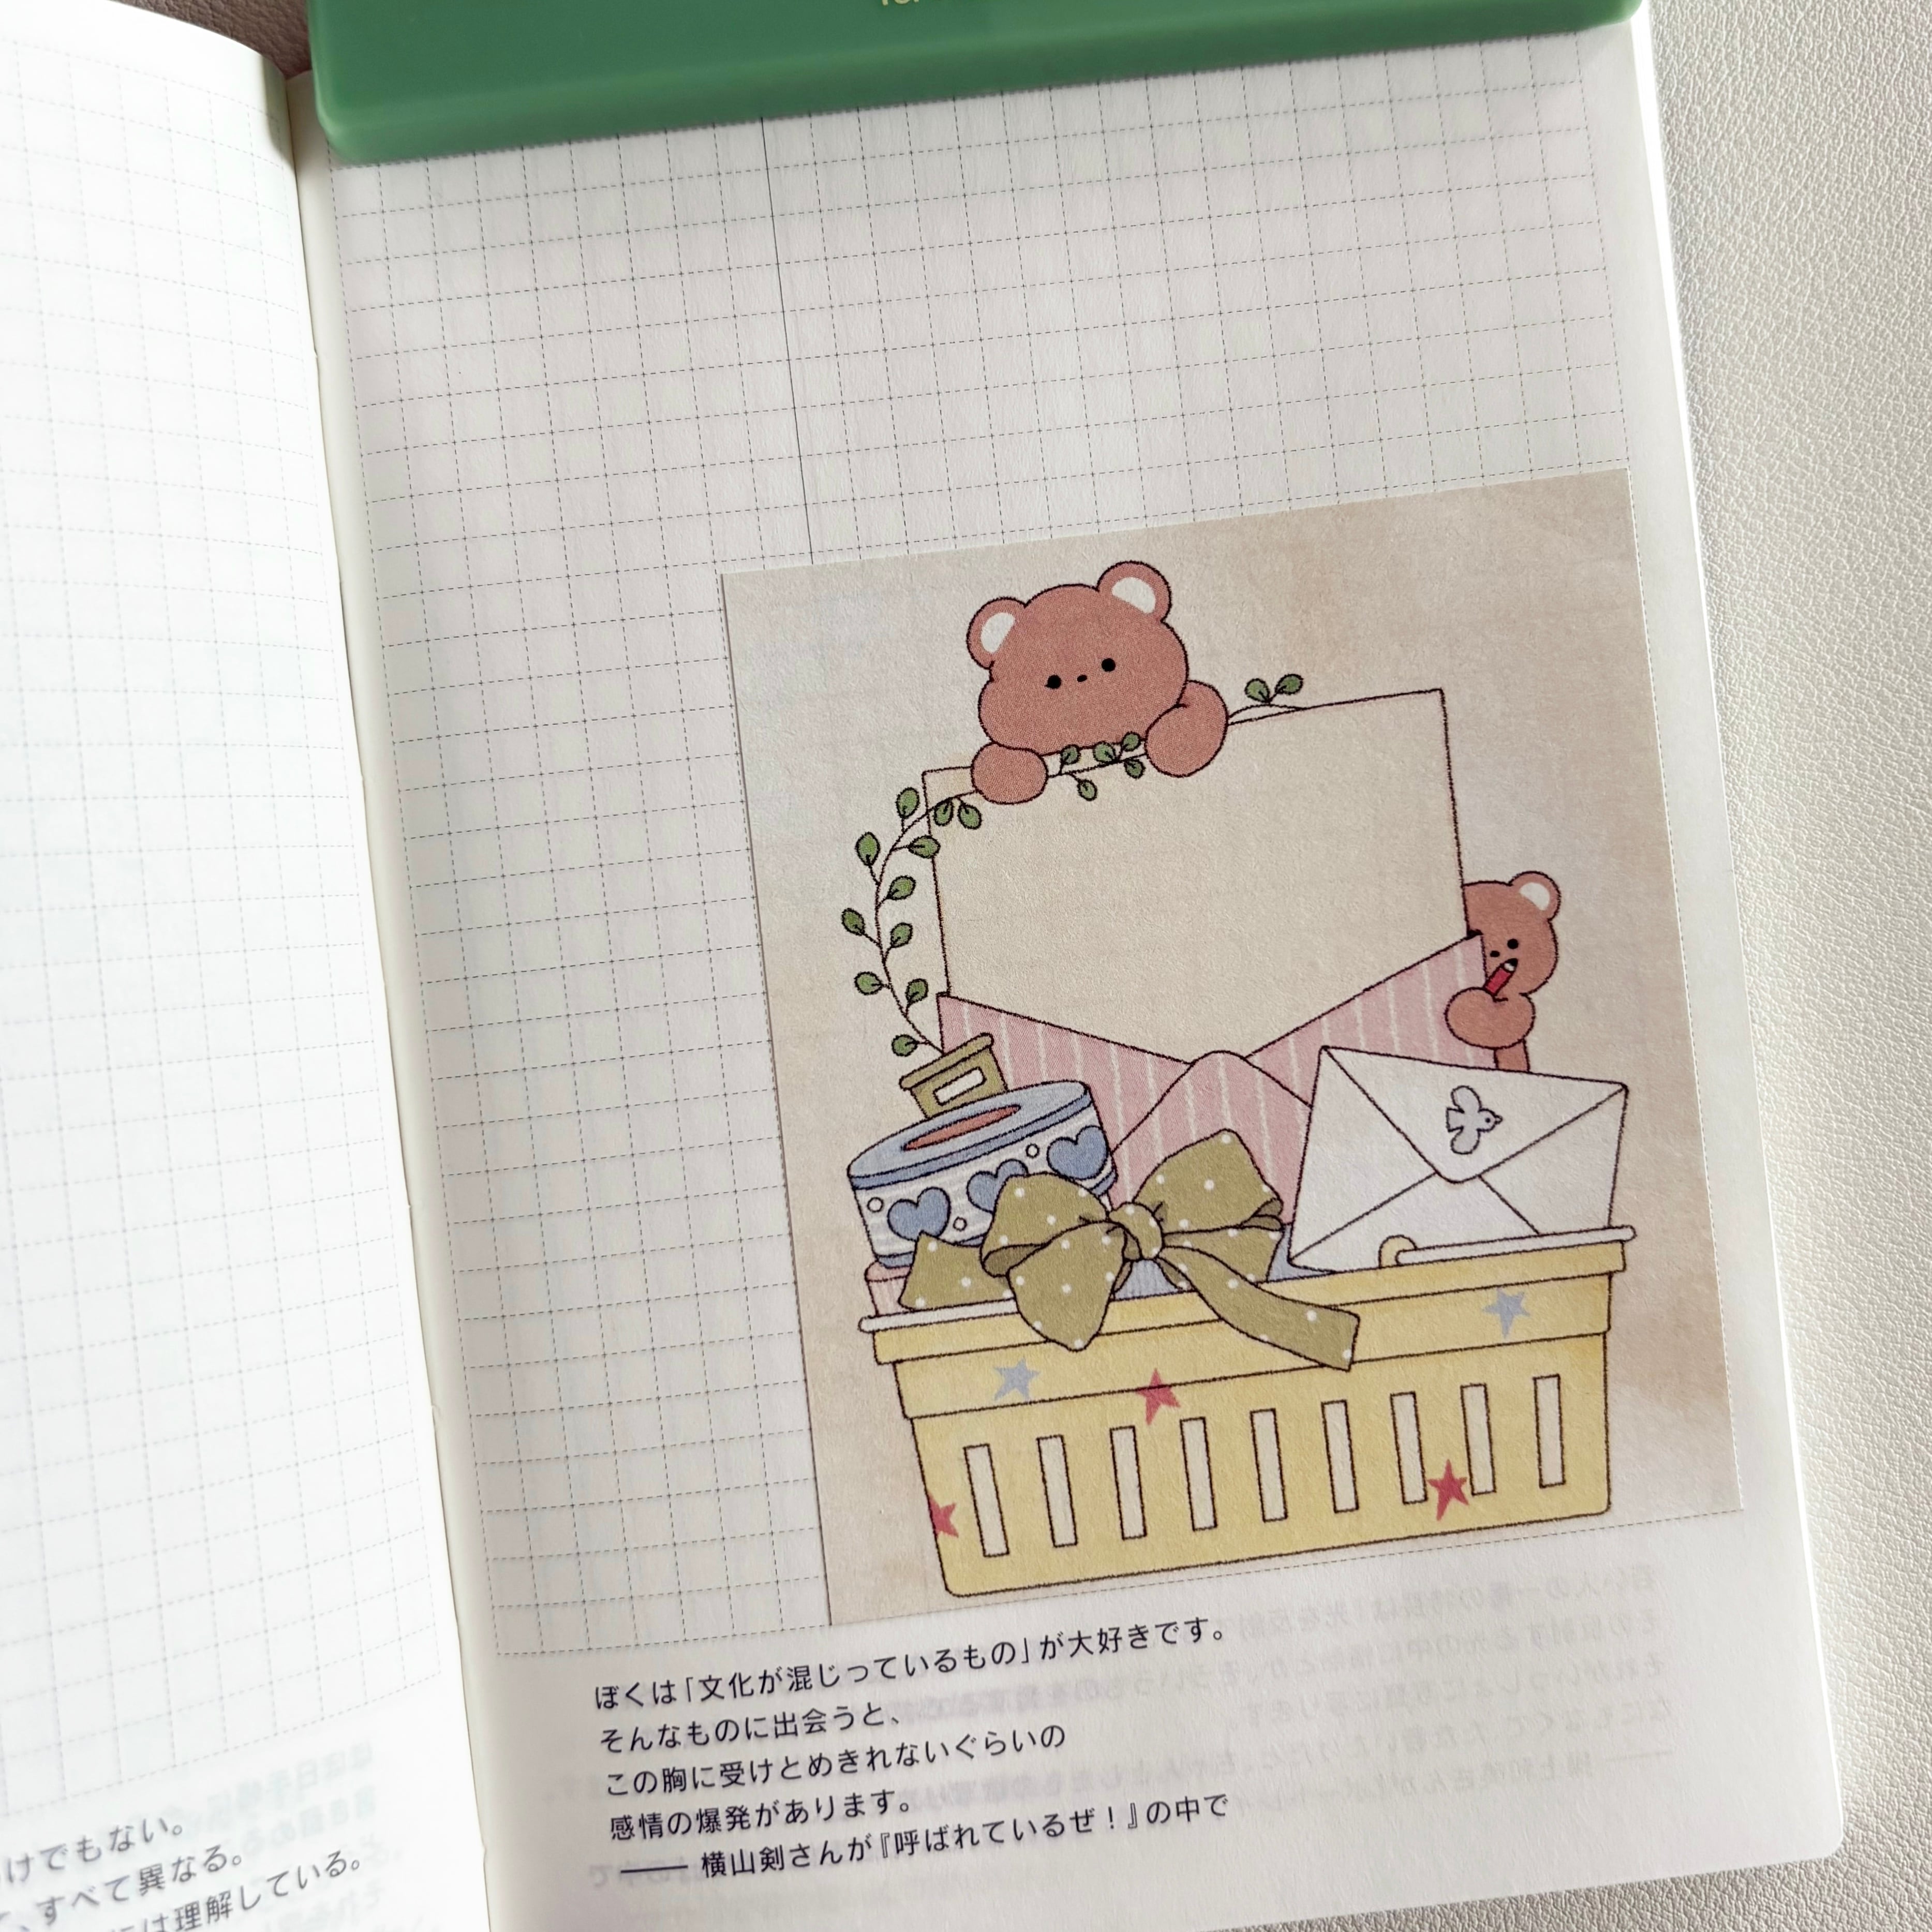 けでもない。
、すべて異なる。
には理解している。
ぼくは「文化が混じっているもの」が大好きです。
そんなものに出会うと、
この胸に受けとめきれないぐらいの
感情の爆発があります。
―― 横山剣さんが『呼ばれているぜ！』の中で